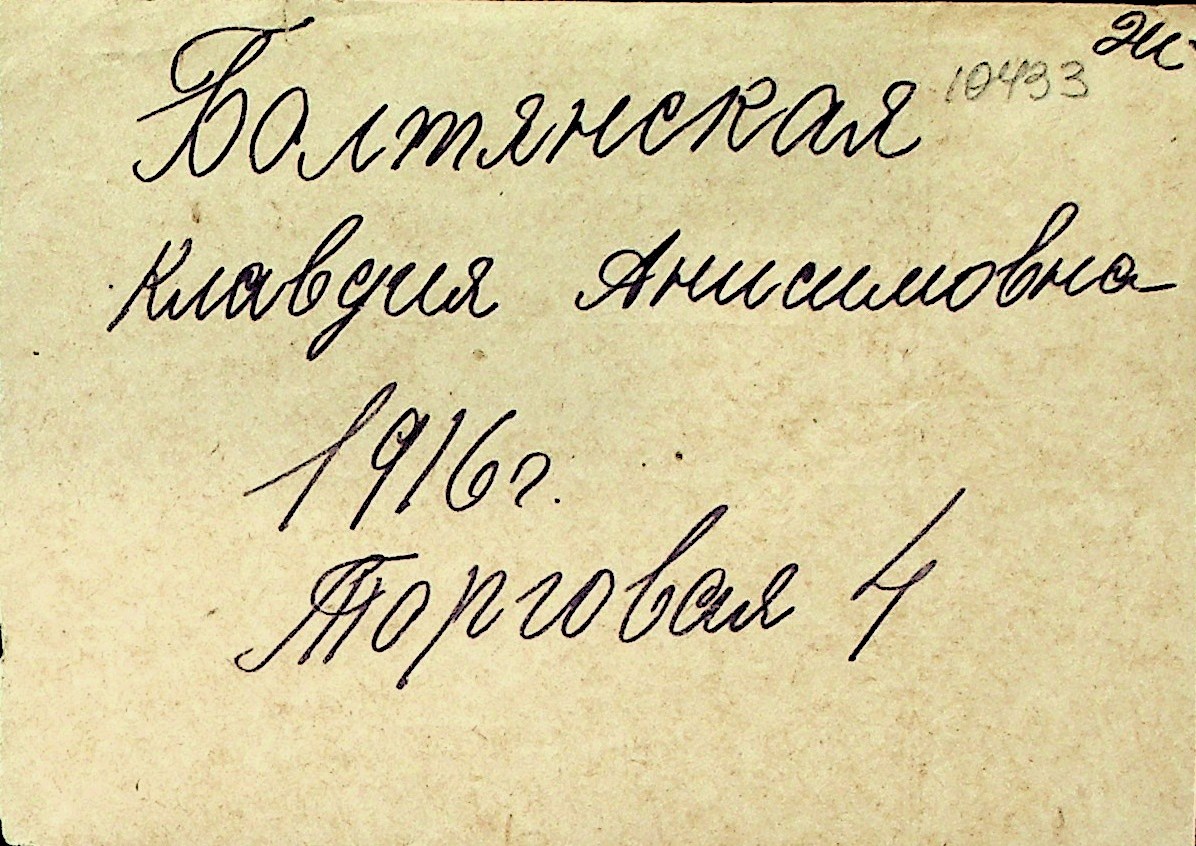 10433
Болтянская
Клавдия Анисимовна
1916 г.
Торговая 4